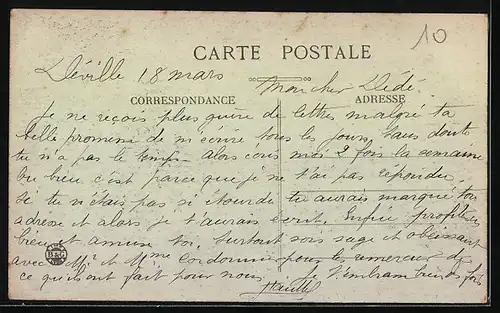 10
CARTE POSTALE
Déville 18 mars
Mon cher Dédé
CORRESPONDANCE
ADRESSE
Je ne reçois plus guère de lettres malgré ta
belle promesse de m'écrire tous les jours, sans doute
tu n'a pas le temps - alors écris moi 2 fois la semaine
ou bien c'est parce que je ne t'ai pas répondu
si tu n'étais pas si étourdi tu aurais marqué ton
adresse et alors je t'aurais écrit. Enfin profite
bien et amuse toi, surtout sois sage et obéissant
avec Mr et Mme Cordonnier pour les remercier de
ce qu'ils ont fait pour nous. Je t'embrasse bien fort